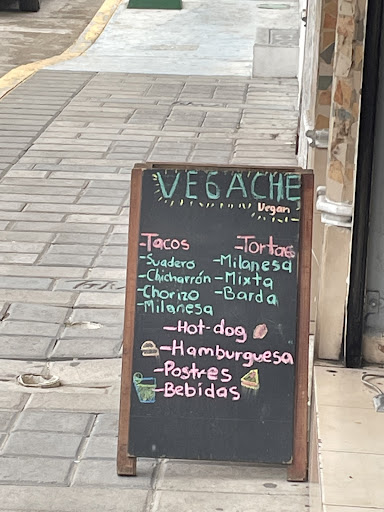 VEGACHE
Vegan
Tacos
-Suadero
-Chicharrón
-Chorizo
-Milanesa
-Tortas
-Milanesa
-Mixta
-Barda
-Hot-dog
-Hamburguesa
-Postres
-Bebidas